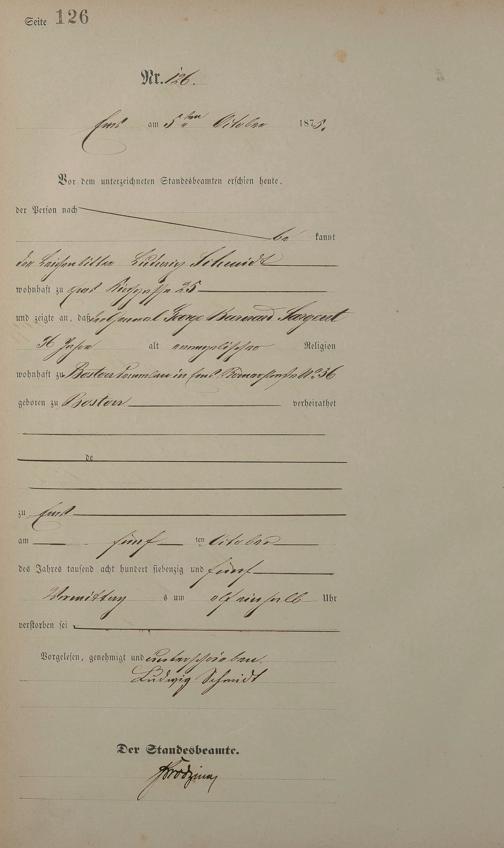 Seite 126
Nr. 126.
Ems am 5ten October 1875.
Vor dem unterzeichneten Standesbeamten erschien heute,
der Person nach
be kannt
der Leichenbitter Ludwig Schmidt
wohnhaft zu Ems 25
und zeigte an, daß George Barnard Sargent
Jahre alt evangelischer Religion
wohnhaft zu Boston in Ems 236
geboren zu Boston verheirathet
de
zu Ems
am fünf ten October
des Jahres tausend acht hundert siebenzig und fünf
Vormittag s um elf einhalb Uhr
verstorben sei
Vorgelesen, genehmigt und unterschrieben.
Ludwig Schmidt
Der Standesbeamte.